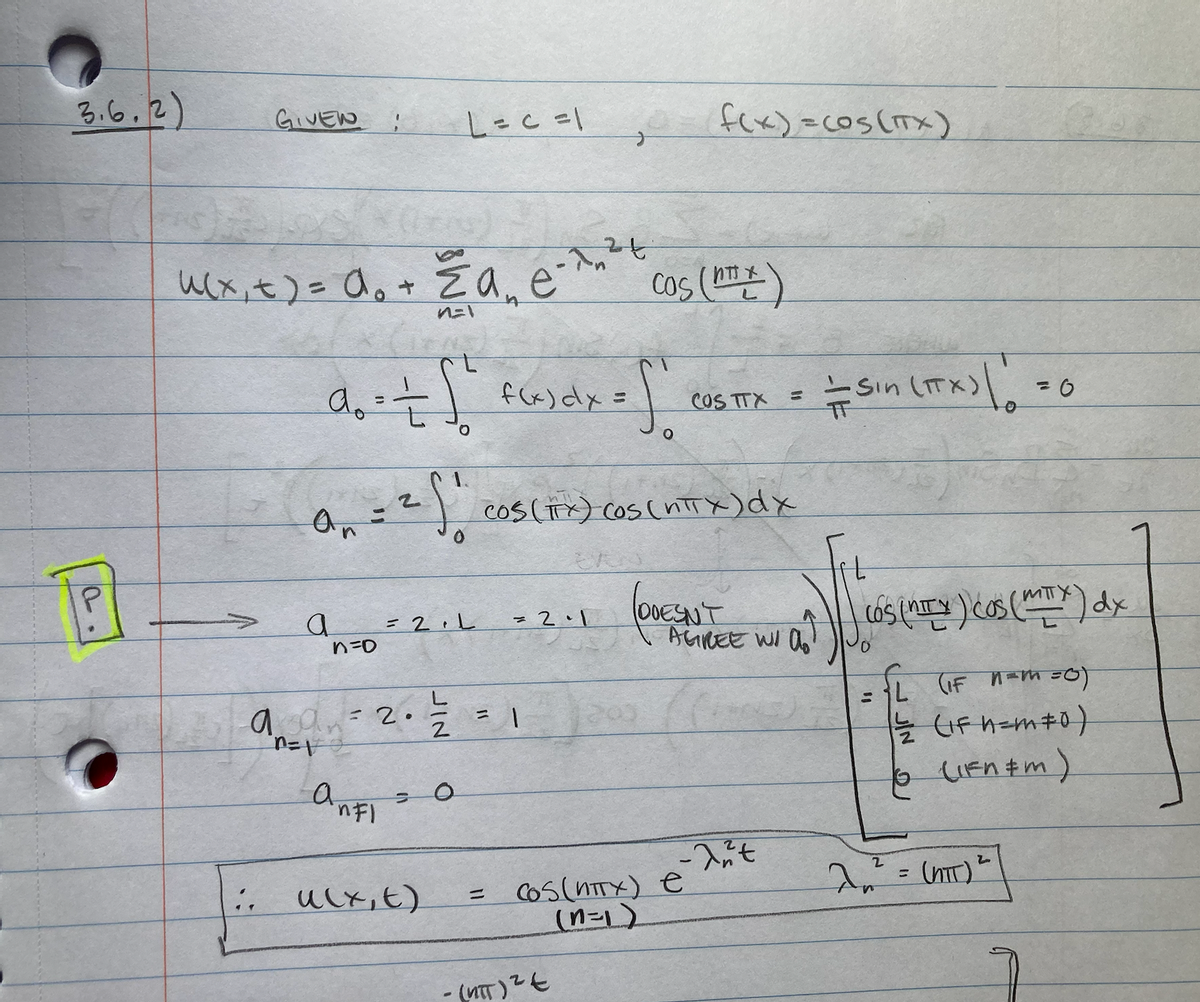 3.6.2) GIVEN : L = c = 1 , f(x) = cos(πx)
u(x,t) = a₀ + ∑_{n=1}^{∞} aₙ e^{-λₙ²t} cos(nπx/L)
a₀ = 1/L ∫₀ᴸ f(x)dx = ∫₀¹ cos πx = 1/π sin(πx)|₀¹ = 0
aₙ = 2 ∫₀¹ cos(πx) cos(nπx)dx
? → a_{n=0} = 2·L = 2·1 (DOESN'T AGREE W/ a₀ ↑) [∫₀ᴸ cos(nπx/L) cos(mπx/L) dx
= { L (IF n=m=0)
a_{n=1} = 2·L/2 = 1 L/2 (IF n=m≠0)
a_{n≠1} = 0 0 (IF n≠m) ]
∴ u(x,t) = cos(nπx) e^{-λₙ²t} λₙ² = (nπ)²
(n=1)
-(nπ)²t